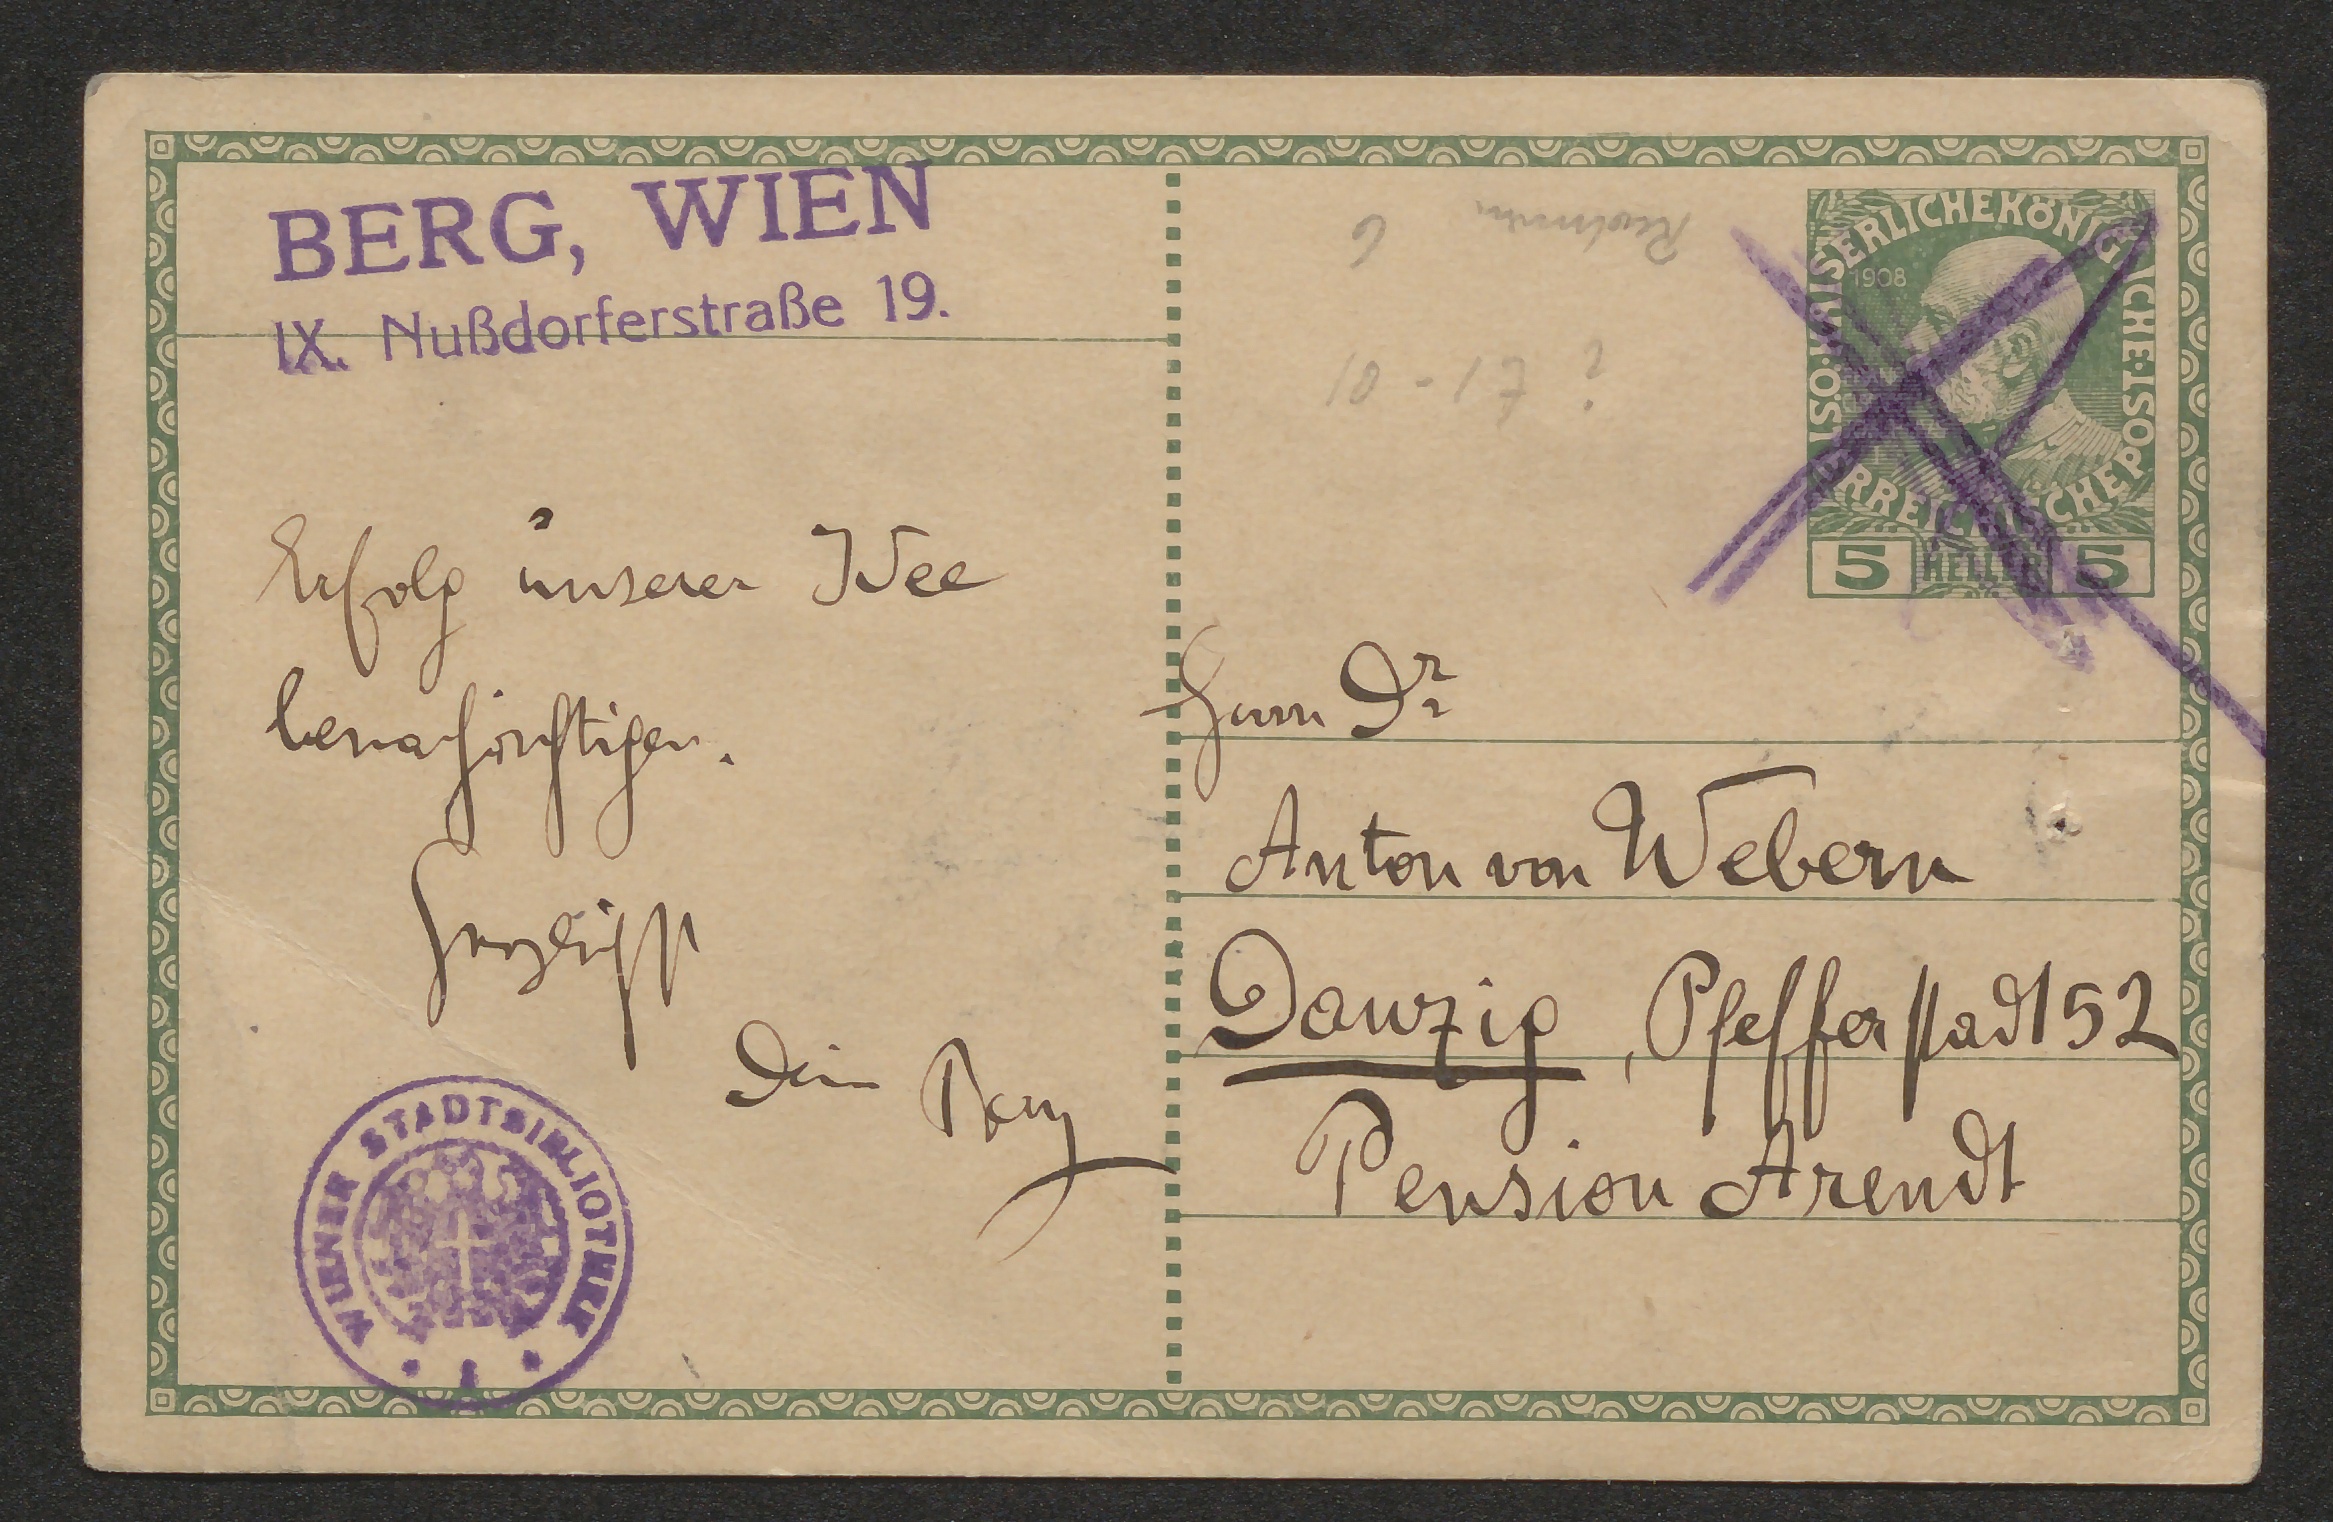 BERG, WIEN
IX. Nußdorferstraße 19.
Erfolg unserer Idee
benachrichtigen.
Herzlichst
Dein Berg
WIENER STADTBIBLIOTHEK
6
10-17 ?
KAISERLICHE KÖNIGLICHE ÖSTERREICHISCHE POST
1908
5 HELLER 5
Herrn Dr
Anton von Webern
Danzig, Pfefferstadt 52
Pension Arendt